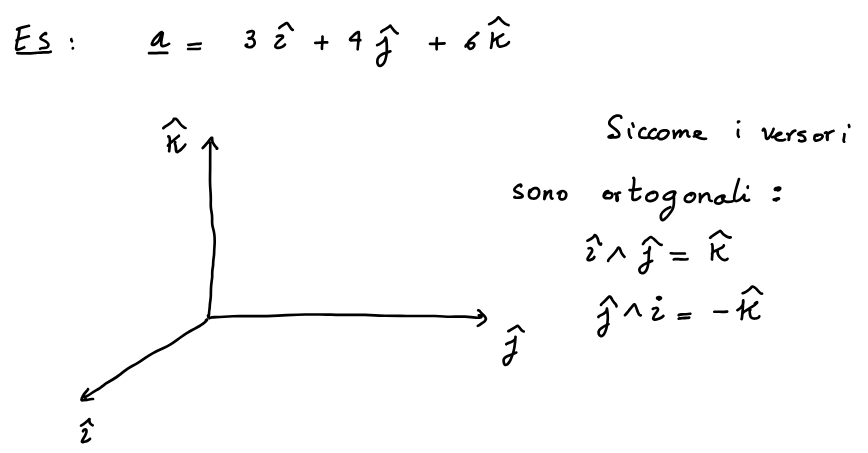 Es : a = 3 î + 4 ĵ + 6 k̂
k̂
Siccome i versori
sono ortogonali :
î ∧ ĵ = k̂
ĵ ∧ i = - k̂
ĵ
î